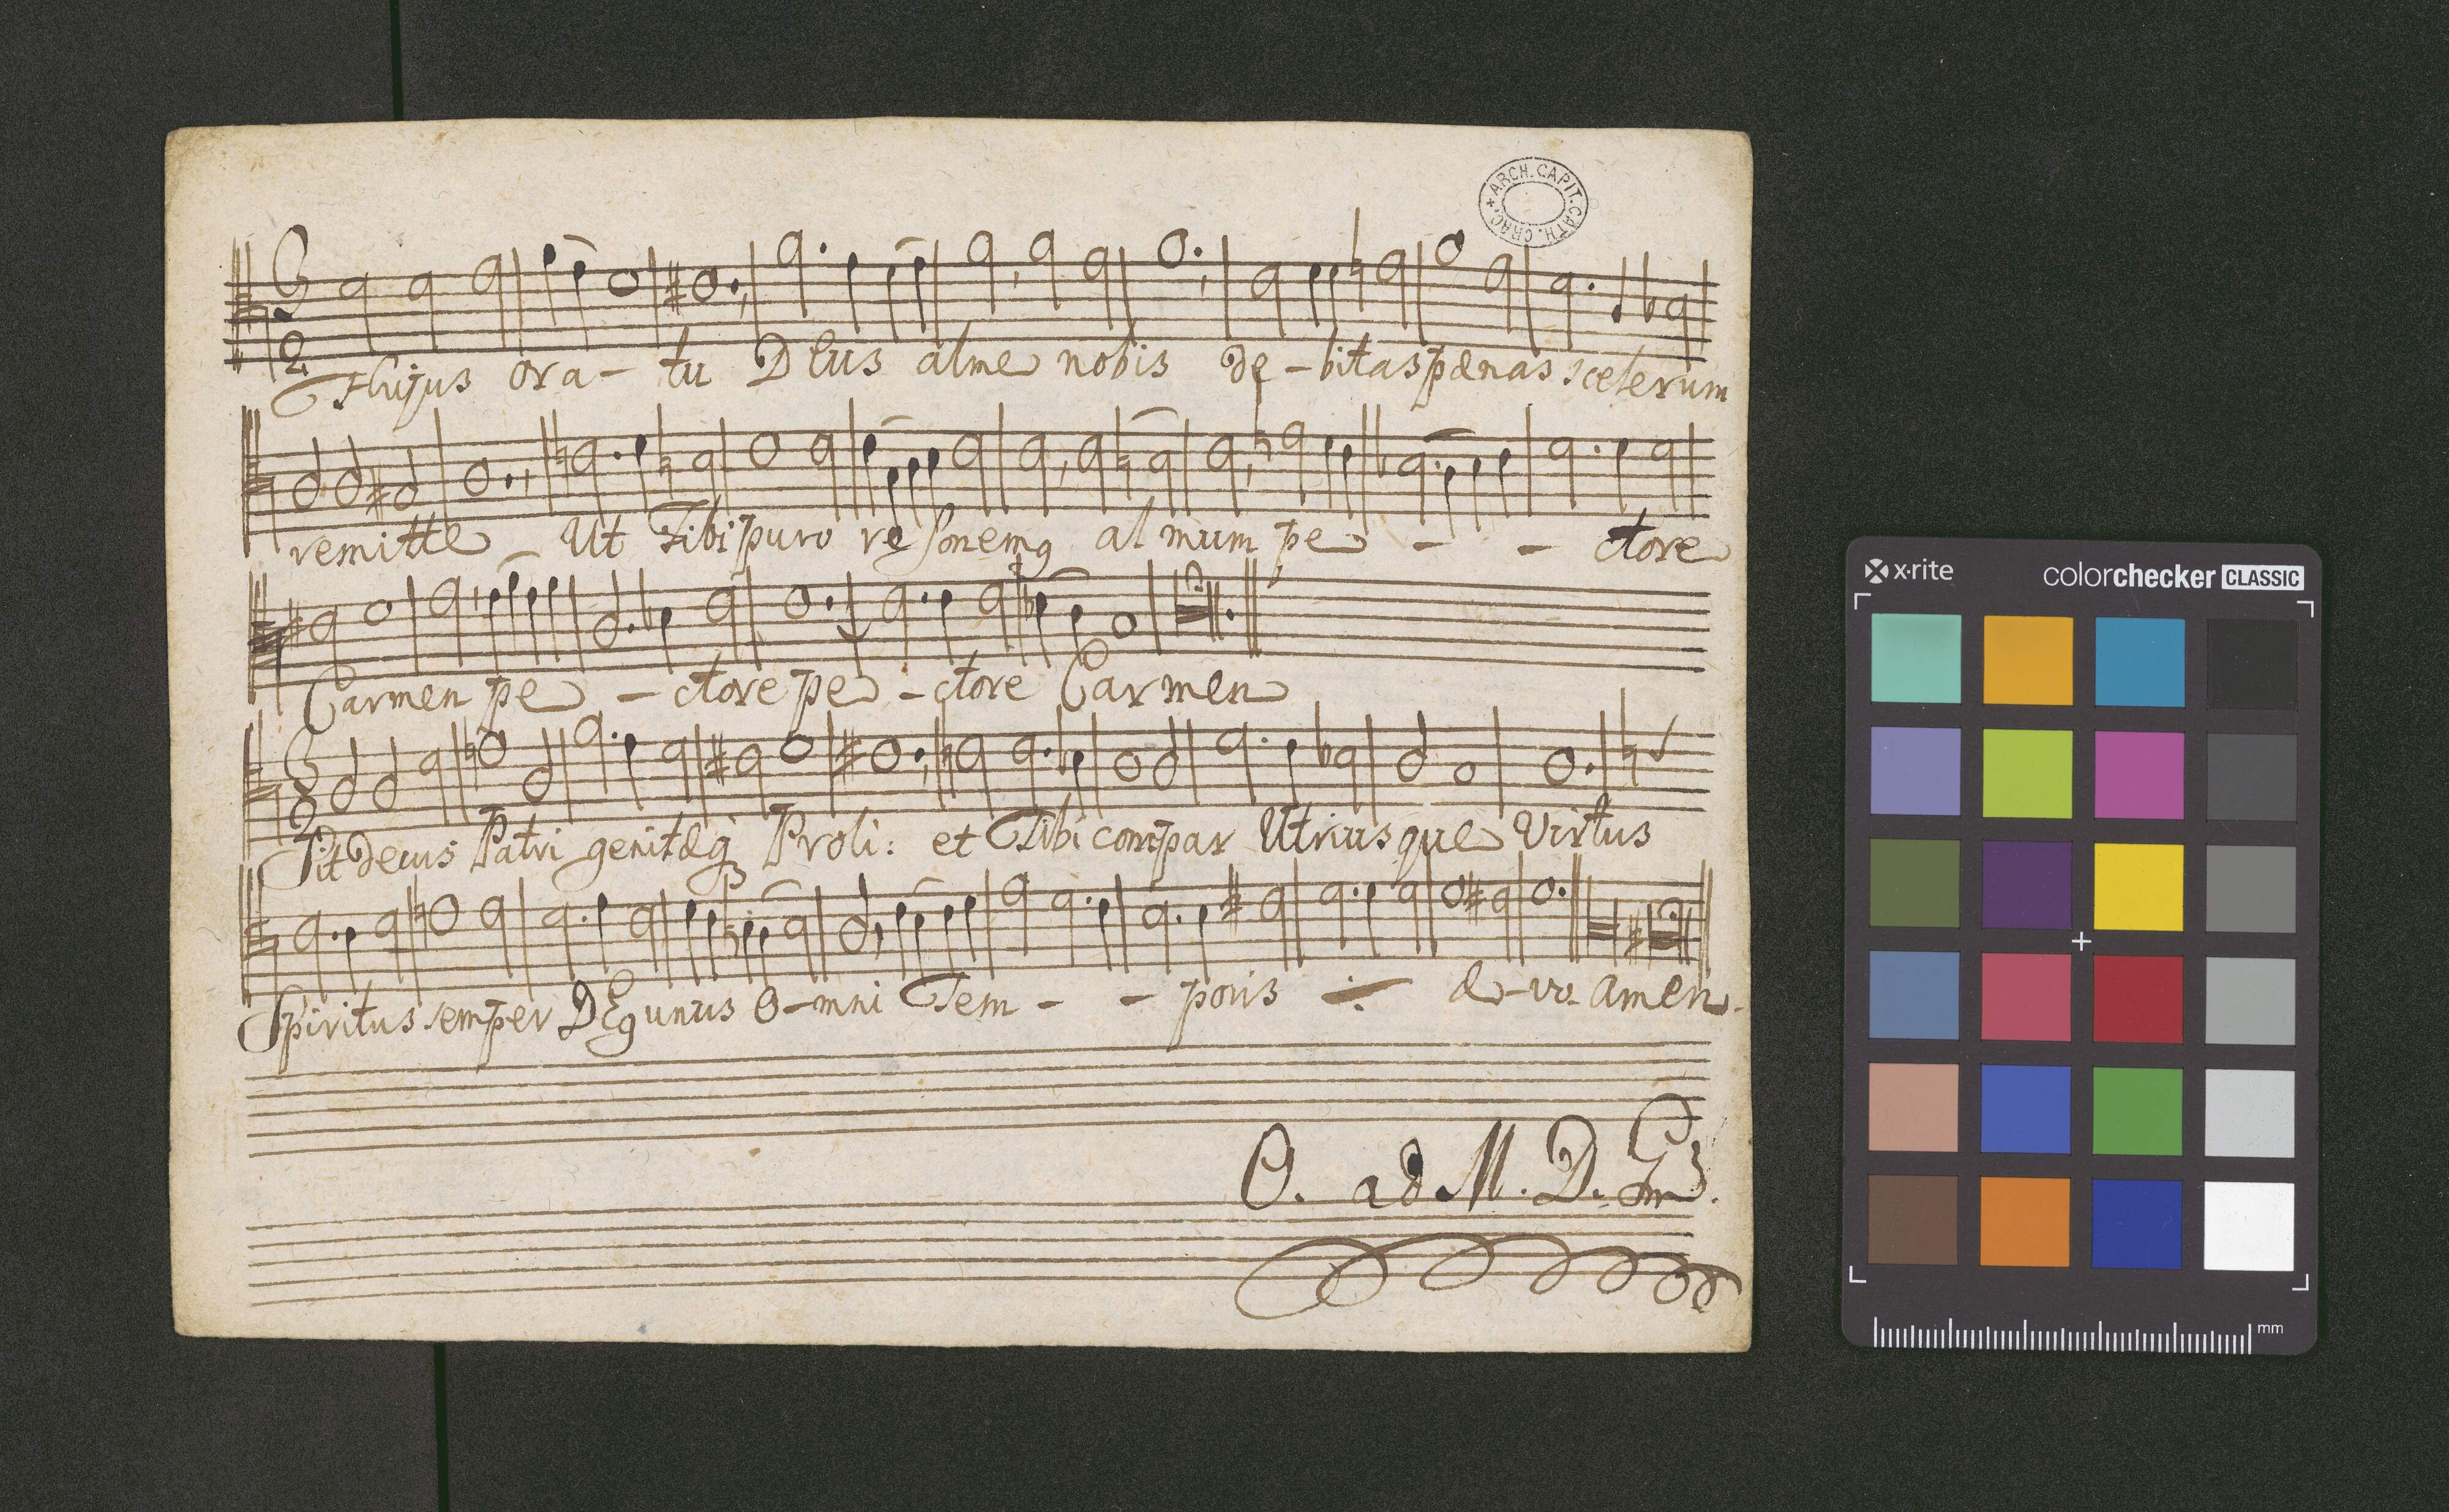 ARCH. CAPIT. CATH. CRAC.
Hujus ora - tu Deus alme nobis de - bitas pænas scelerum
remitte Ut Tibi puro resonemq almum pe - - ctore
Carmen pe - ctore pe - ctore Carmen
Sit Decus Patri genitæq Proli: et Tibi compar Utriusque Virtus
Spiritus semper DEq unus O - mni Tem - - poris æ - vo Amen.
O. ad M. D.
x·rite colorchecker CLASSIC
mm